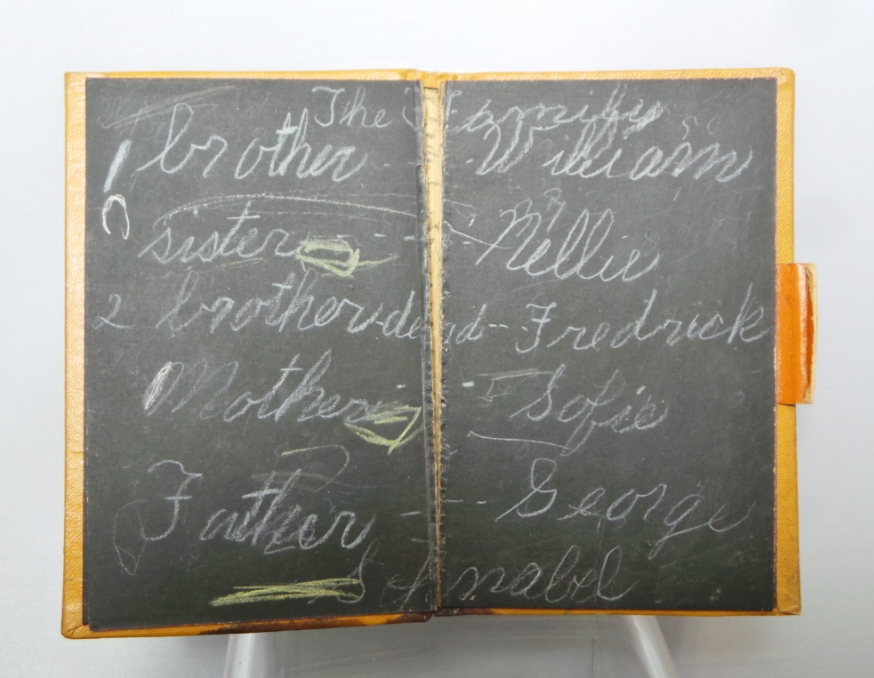 The Family
1 brother - - William
sister - - - Nellie
2 brother-dead-- Fredrick
Mother - Sofie
Father - - - George
Schnabel